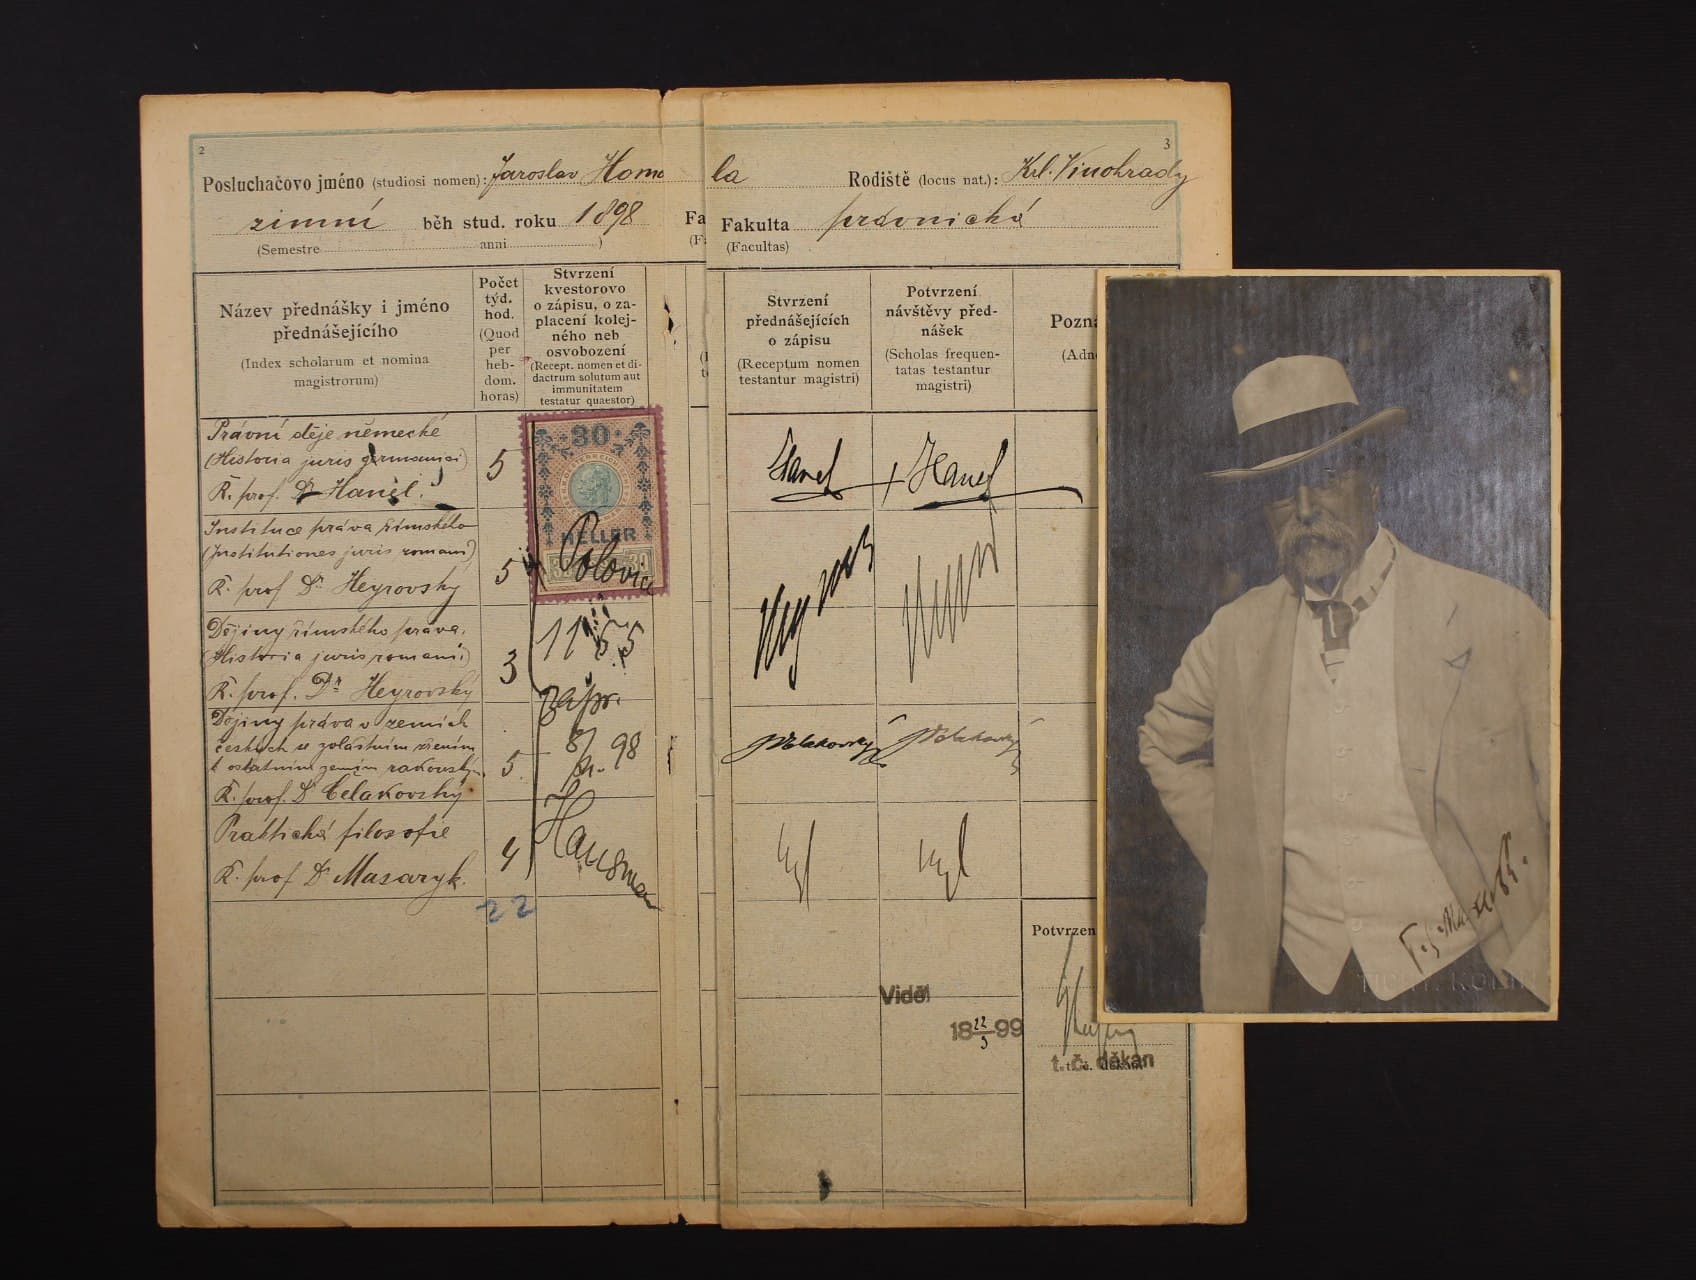 2
3
Posluchačovo jméno (studiosi nomen): Jaroslav Homo
la Rodiště (locus nat.): Krl. Vinohrady
zimní běh stud. roku 1898 Fa
Fakulta právnická
(Semestre anni )
(Facultas)
Název přednášky i jméno
přednášejícího
(Index scholarum et nomina
magistrorum)
Počet
týd.
hod.
(Quod
per
heb-
dom.
horas)
Stvrzení
kvestorovo
o zápisu, o za-
placení kolej-
ného neb
osvobození
(Recept. nomen et di-
dactrum solutum aut
immunitatem
testatur quaestor)
Stvrzení
přednášejících
o zápisu
(Receptum nomen
testantur magistri)
Potvrzení
návštěvy před-
nášek
(Scholas frequen-
tatas testantur
magistri)
Pozná
(Adn
Právní děje německé
(Historia juris germanici)
Ř. prof. Dr Hanel.
5
30
HELLER
Hanel
Hanel
Instituce práva římského
(Institutiones juris romani)
Ř. prof Dr Heyrovský
5
Polovic
Dějiny římského práva.
(Historia juris romani)
Ř. prof. Dr Heyrovský
3
11 55
Dějiny práva v zemích
českých se zvláštním zřením
k ostatním zemím rakouským.
Ř. prof. Dr Čelakovský
5
98
JČelakovský
JČelakovský
Praktická filosofie
Ř. prof Dr Masaryk.
4
Hausman
22
Potvrzen
Viděl
18 22/3 99
t. č. děkan
TGMasaryk.